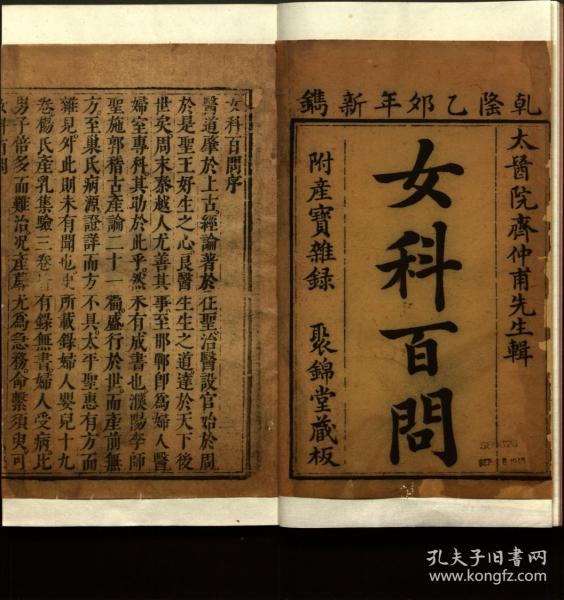 乾隆乙卯年新鐫
太醫院齊仲甫先生輯
女科百問
附產寶雜録 聚錦堂藏板
女科百問序
醫道肇於上古。經論著於任聖。治醫設官始於周
於是聖王好生之心。良醫生生之道。達於天下後
世矣。周末秦越人尤善其事。至邯鄲即為婦人醫
婦室專科。其功於此乎。然未有成書也。濮陽李師
聖施郭稽古產論二十一篇。盛行於世。而產前無
方。至巢氏病源證詳而方不具。太平聖惠有方而
雜見。外此則未有聞也。所載錄婦人嬰兒十九
卷。楊氏產乳集驗三卷。有錄無書。婦人受病。比
男子倍多而難治。況產蓐尤為急務。命繫須臾。可
女科百問
孔夫子旧书网
www.kongfz.com